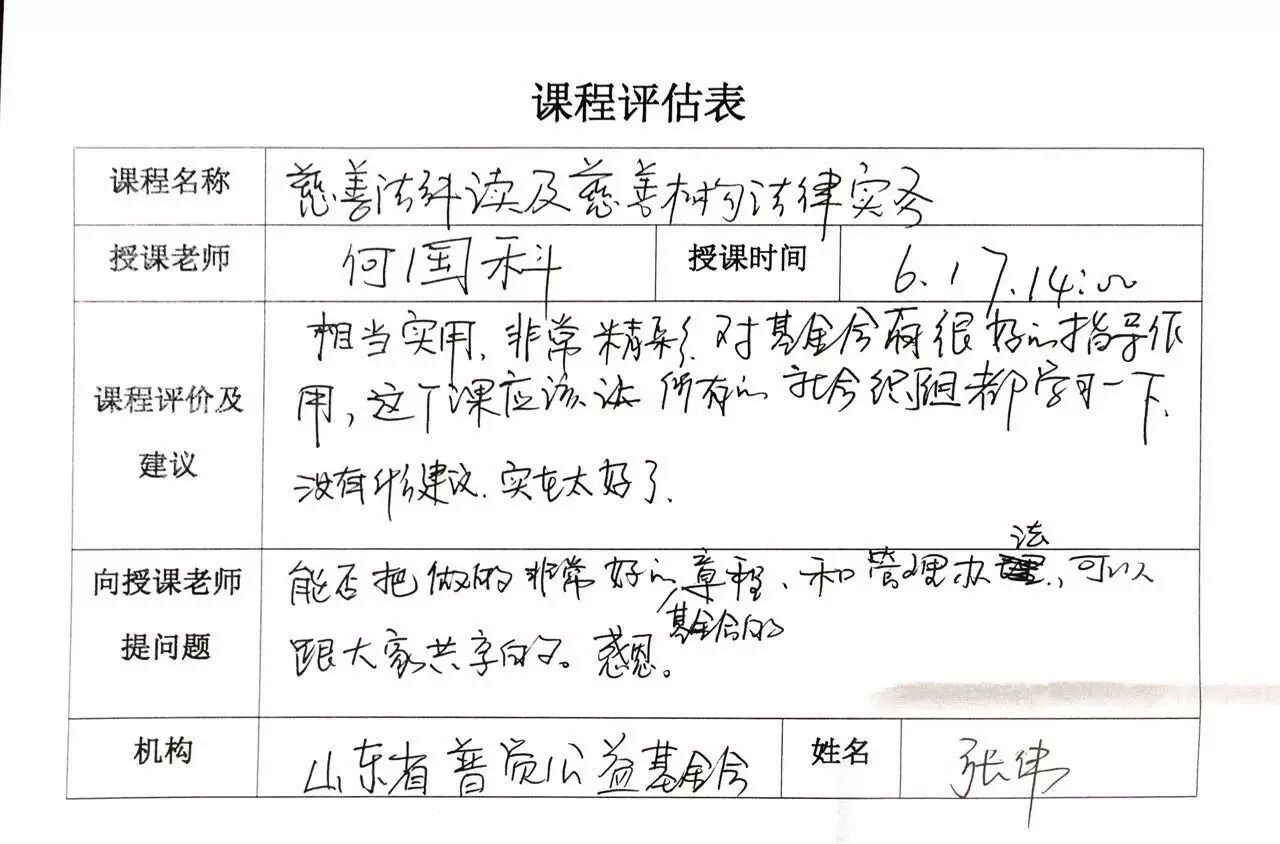 课程评估表
课程名称
慈善法解读及慈善机构法律实务
授课老师
何国科
授课时间
6.17.14:00
课程评价及
建议
相当实用,非常精彩,对基金会有很好的指导作
用,这个课应该让所有的社会组织都学习一下.
没有什么建议.实在太好了.
向授课老师
提问题
能否把做的非常好的基金会的章程、和管理办法,可以
跟大家共享的。感恩。
机构
山东省普觉公益基金会
姓名
张伟